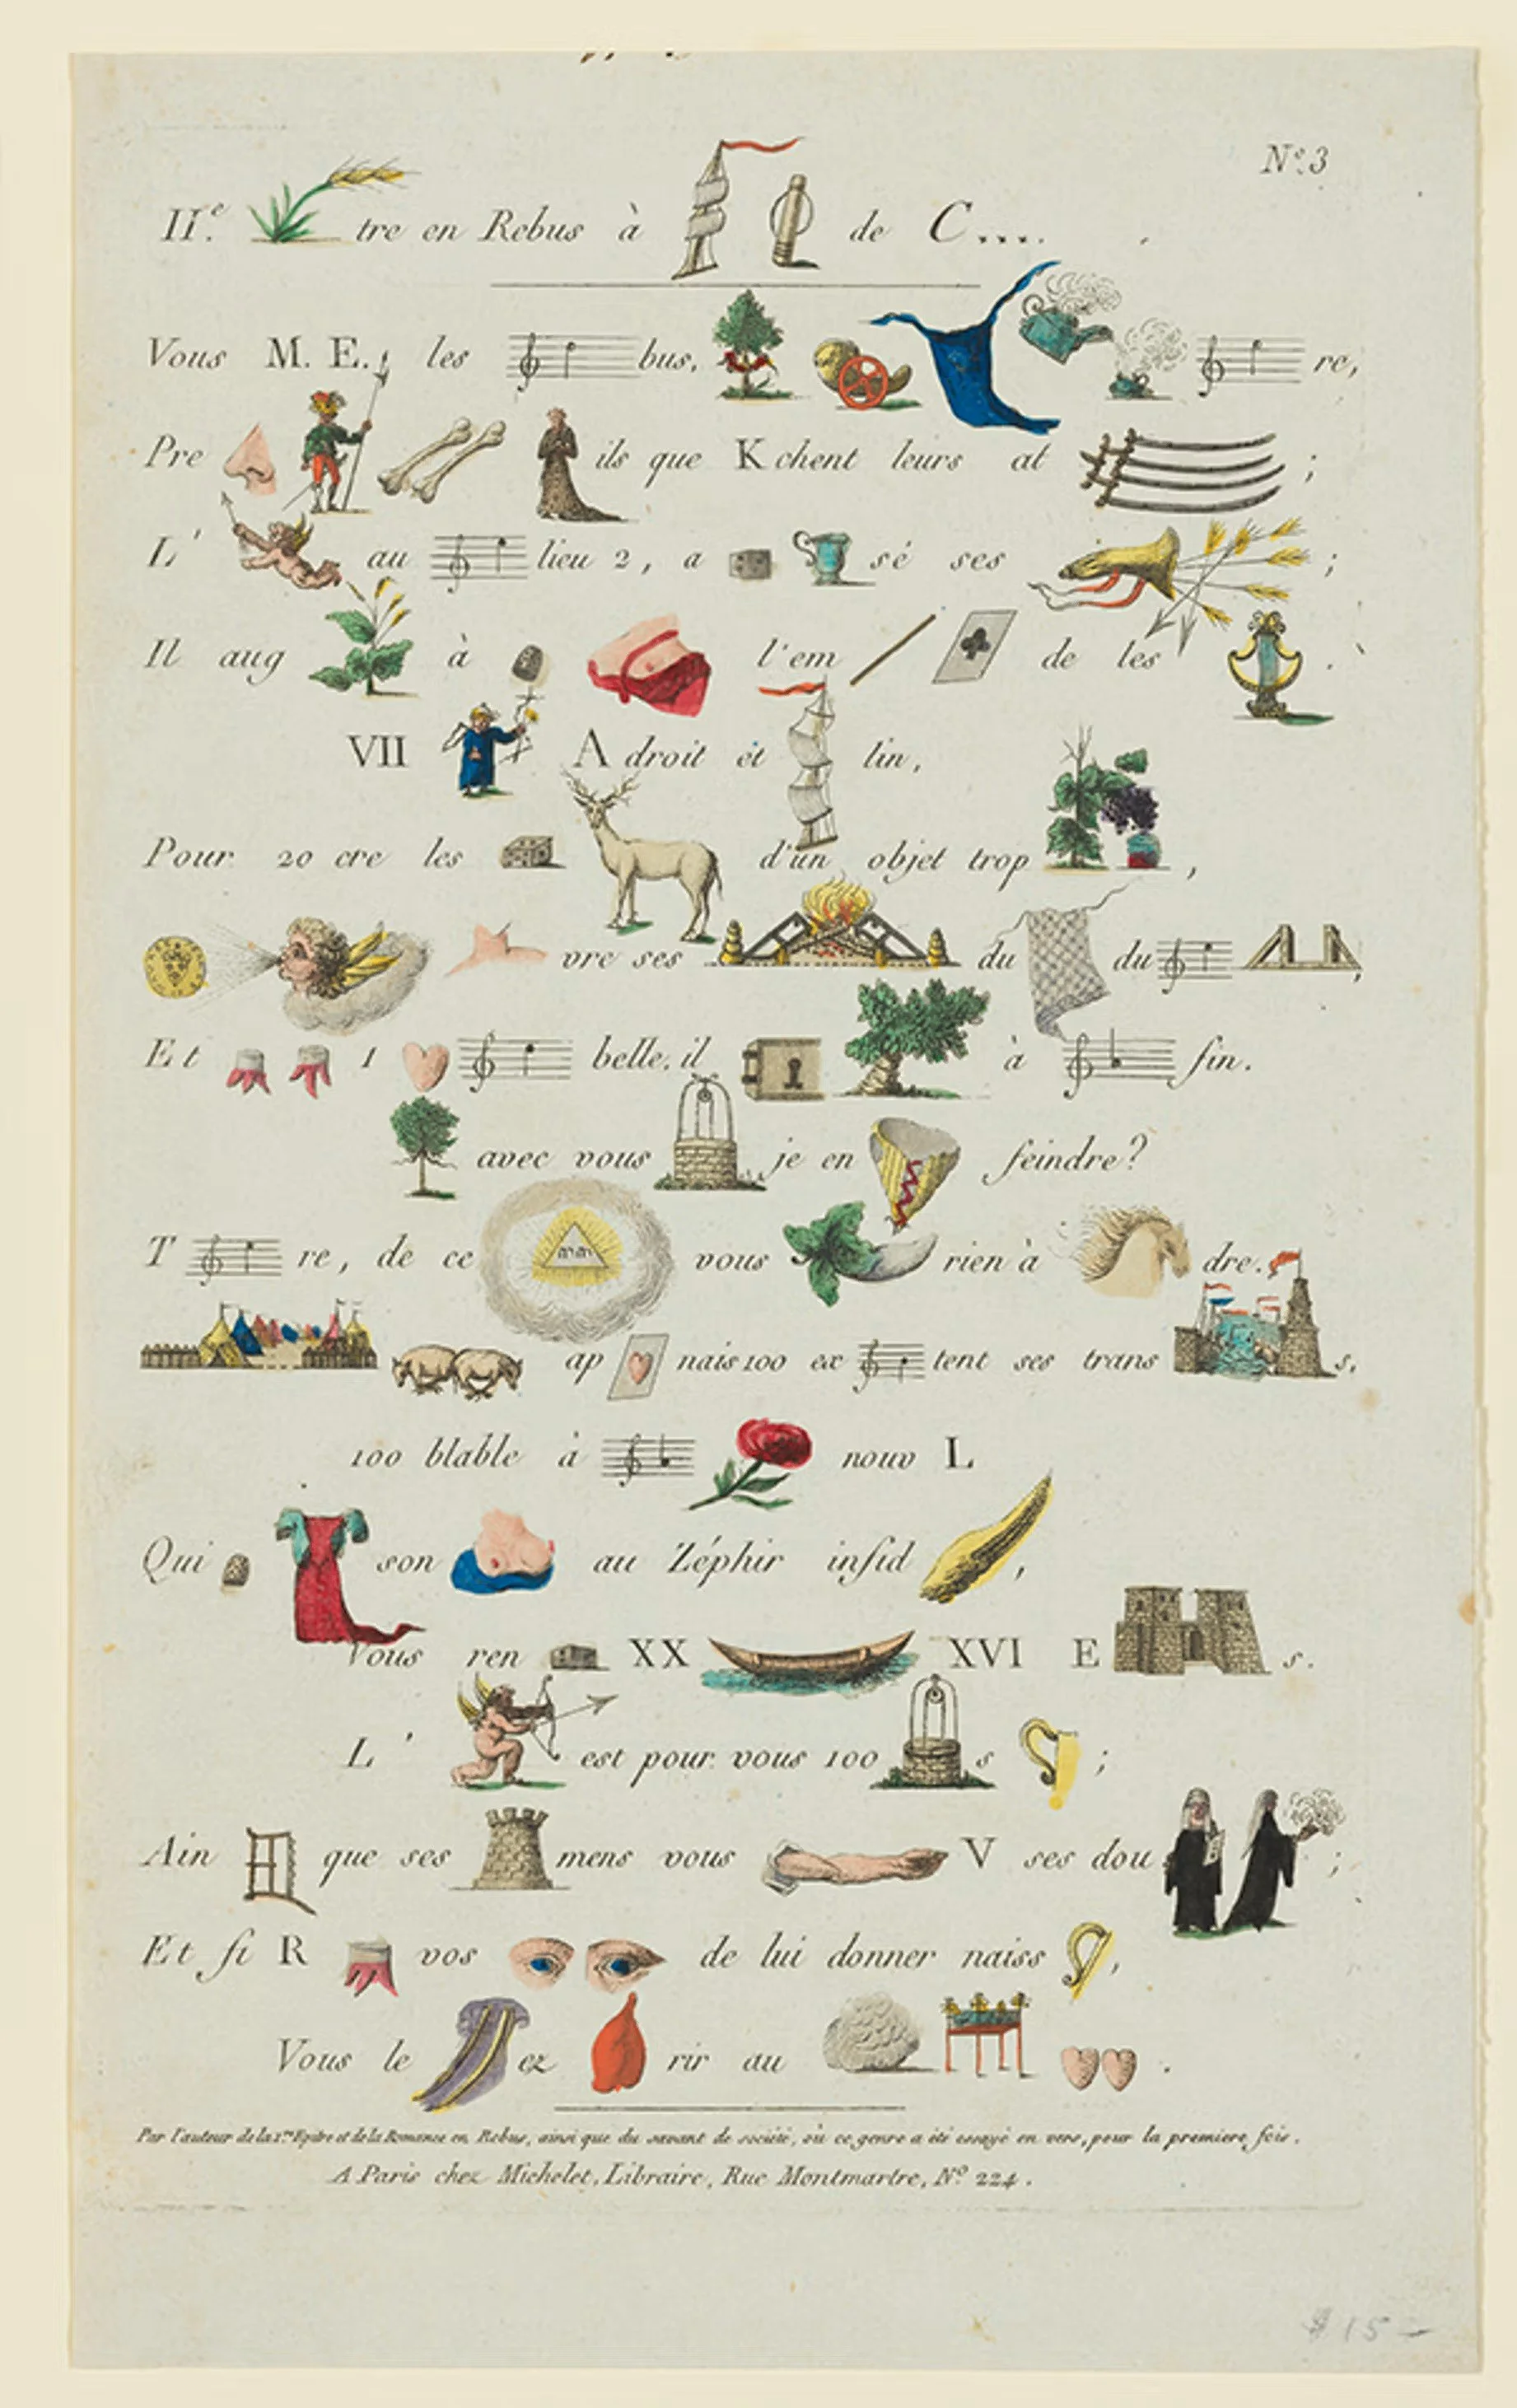 N.º 3
II.e tre en Rebus à de C....
Vous M. E., les bus, re,
Pre ils que K chent leurs at ;
L' au lieu 2, a sé ses ;
Il aug à l'em de les .
VII A droit et lin,
Pour 20 cre les d'un objet trop ,
vre ses du du ,
Et 1 belle, il à fin.
avec vous je en feindre?
T re, de ce vous rien à dre.
ap nais 100 ex tent ses trans s.
100 blable à nouv L
Qui son au Zéphir infid ,
Vous ren XX XVI E s.
L' est pour vous 100 s ;
Ain que ses mens vous V ses dou ;
Et si R vos de lui donner naiss ,
Vous le ez rir au .
Par l'auteur de la 1.re Epitre et de la Romance en Rebus, ainsi que du savant de société, où ce genre a été essayé en vers, pour la premiere fois.
A Paris chez Michelet, Libraire, Rue Montmartre, Nº 224.
$15-